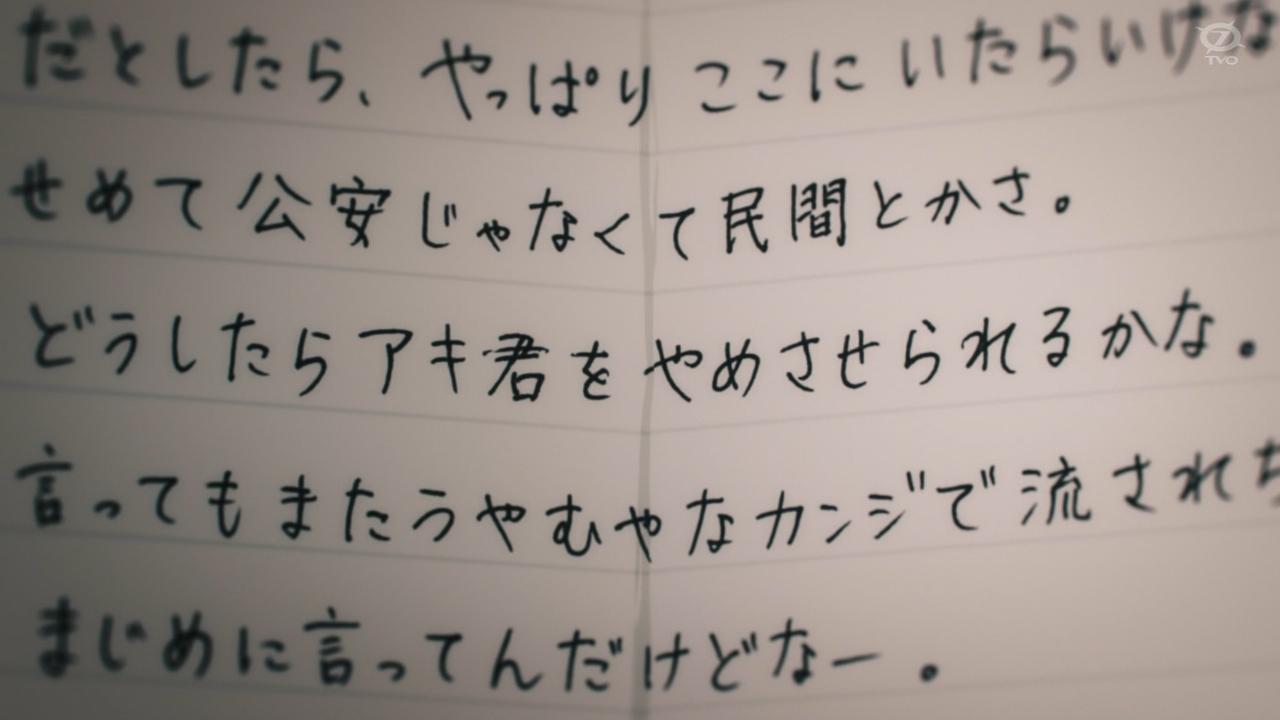 だとしたら、やっぱりここにいたらいけな
せめて公安じゃなくて民間とかさ。
どうしたらアキ君をやめさせられるかな。
言ってもまたうやむやなカンジで流されち
まじめに言ってんだけどなー。
7
TVO